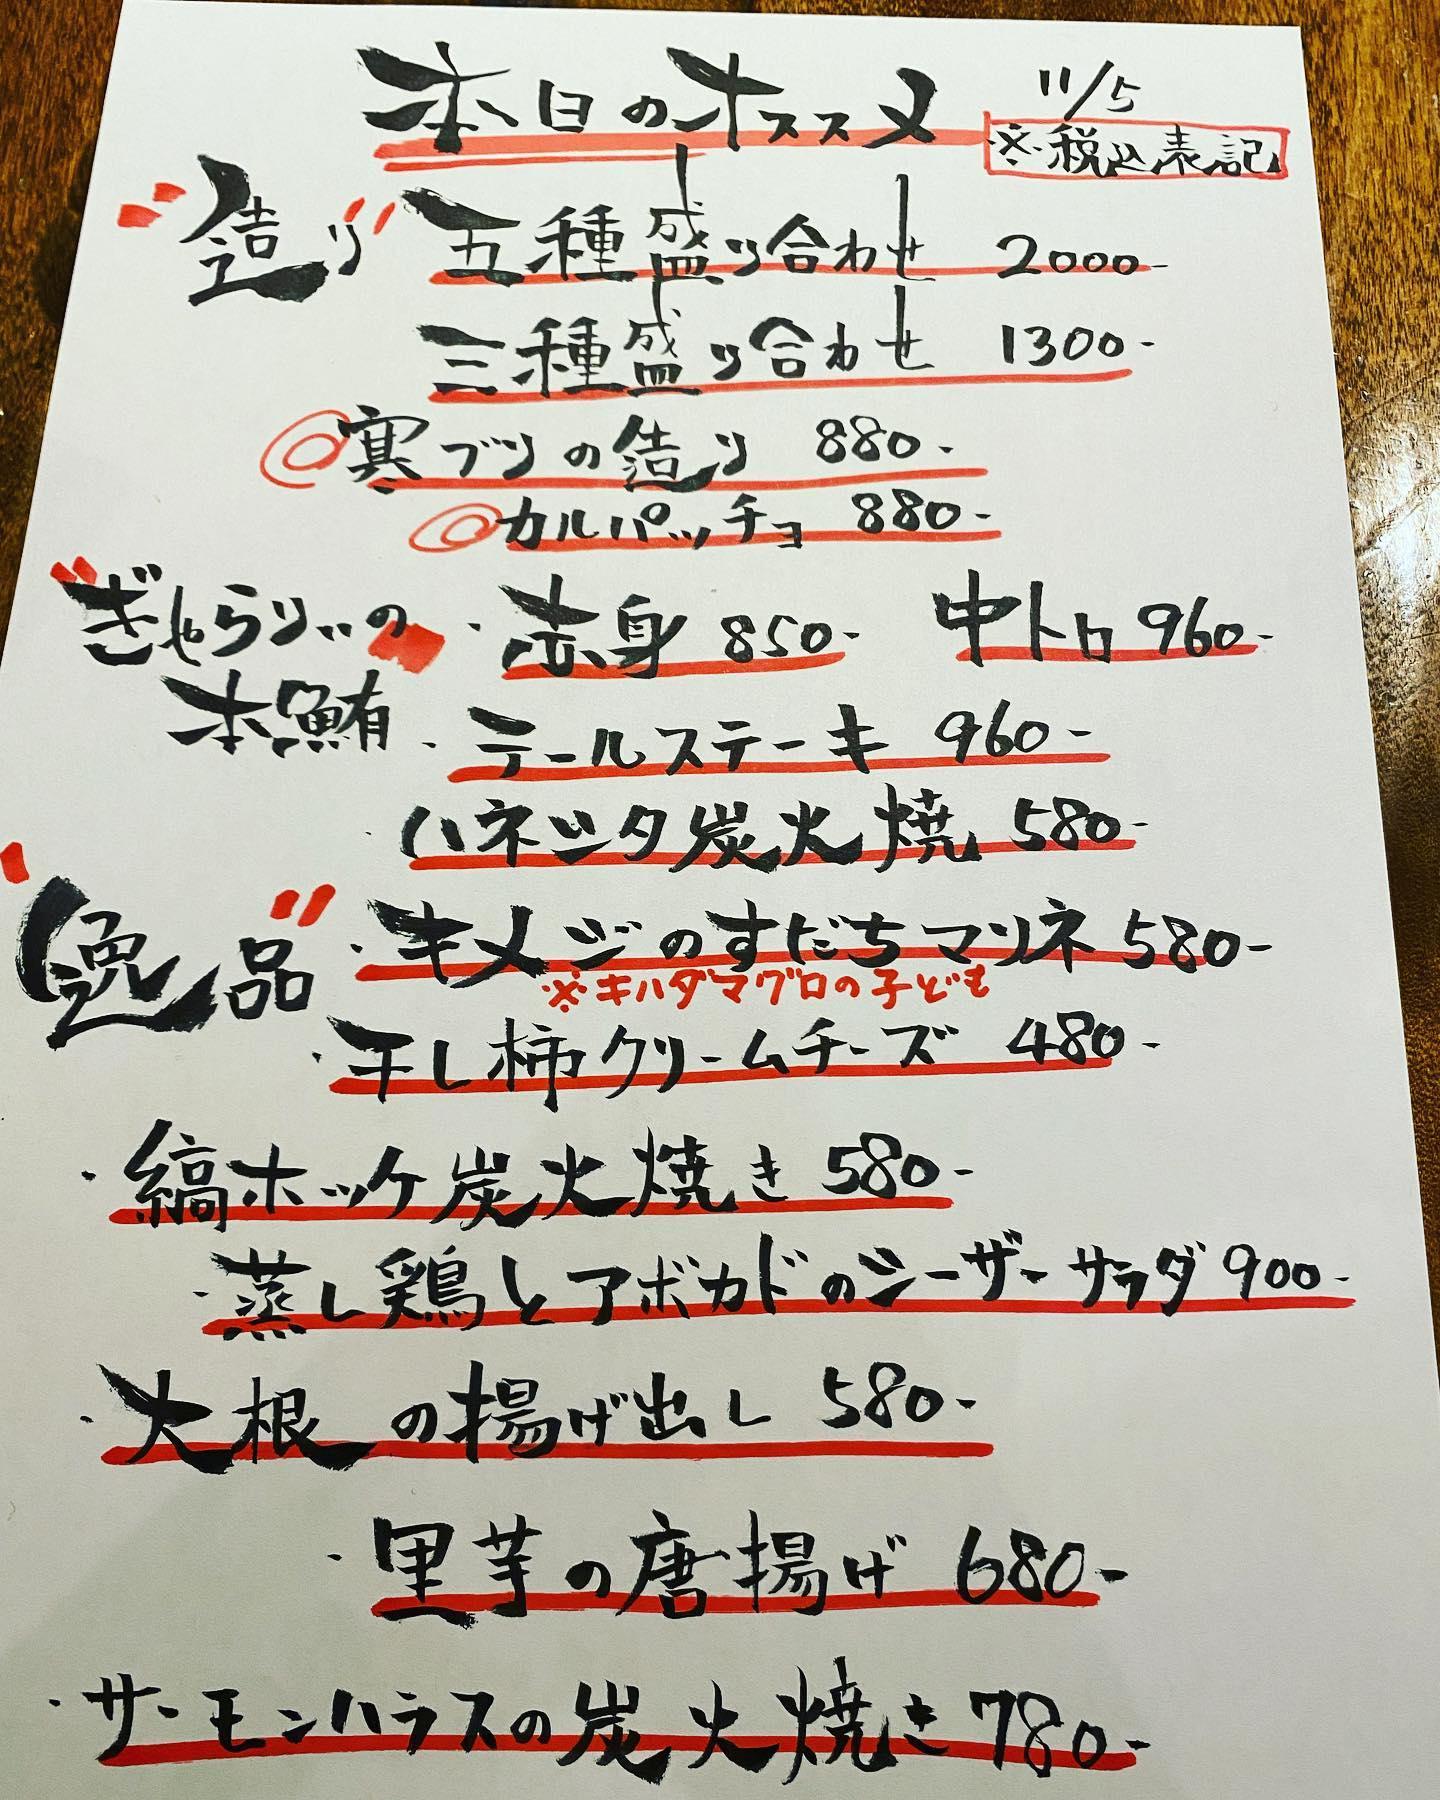 本日のオススメ 11/5
※税込表記
"造り" 五種盛り合わせ 2000-
三種盛り合わせ 1300-
◎寒ブリの造り 880-
◎カルパッチョ 880-
"ぎゃらりぃの ・赤身 850- 中トロ 960-
本鮪" ・テールステーキ 960-
・ハネシタ炭火焼 580-
"逸品" ・キメジのすだちマリネ 580-
※キハダマグロの子ども
・干し柿クリームチーズ 480-
・縞ホッケ炭火焼き 580-
・蒸し鶏とアボカドのシーザーサラダ 900-
・大根の揚げ出し 580-
・里芋の唐揚げ 680-
・サーモンハラスの炭火焼き 780-